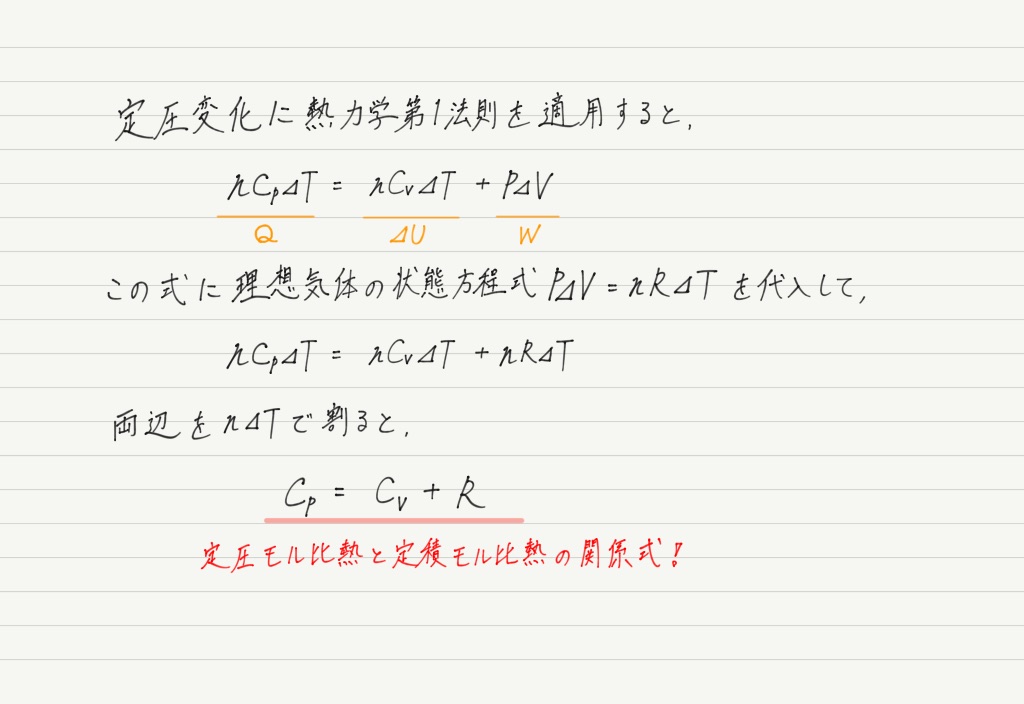 定圧変化に熱力学第1法則を適用すると,
nCpΔT = nCvΔT + PΔV
Q ΔU W
この式に理想気体の状態方程式PΔV=nRΔTを代入して,
nCpΔT = nCvΔT + nRΔT
両辺をnΔTで割ると,
Cp = Cv + R
定圧モル比熱と定積モル比熱の関係式!